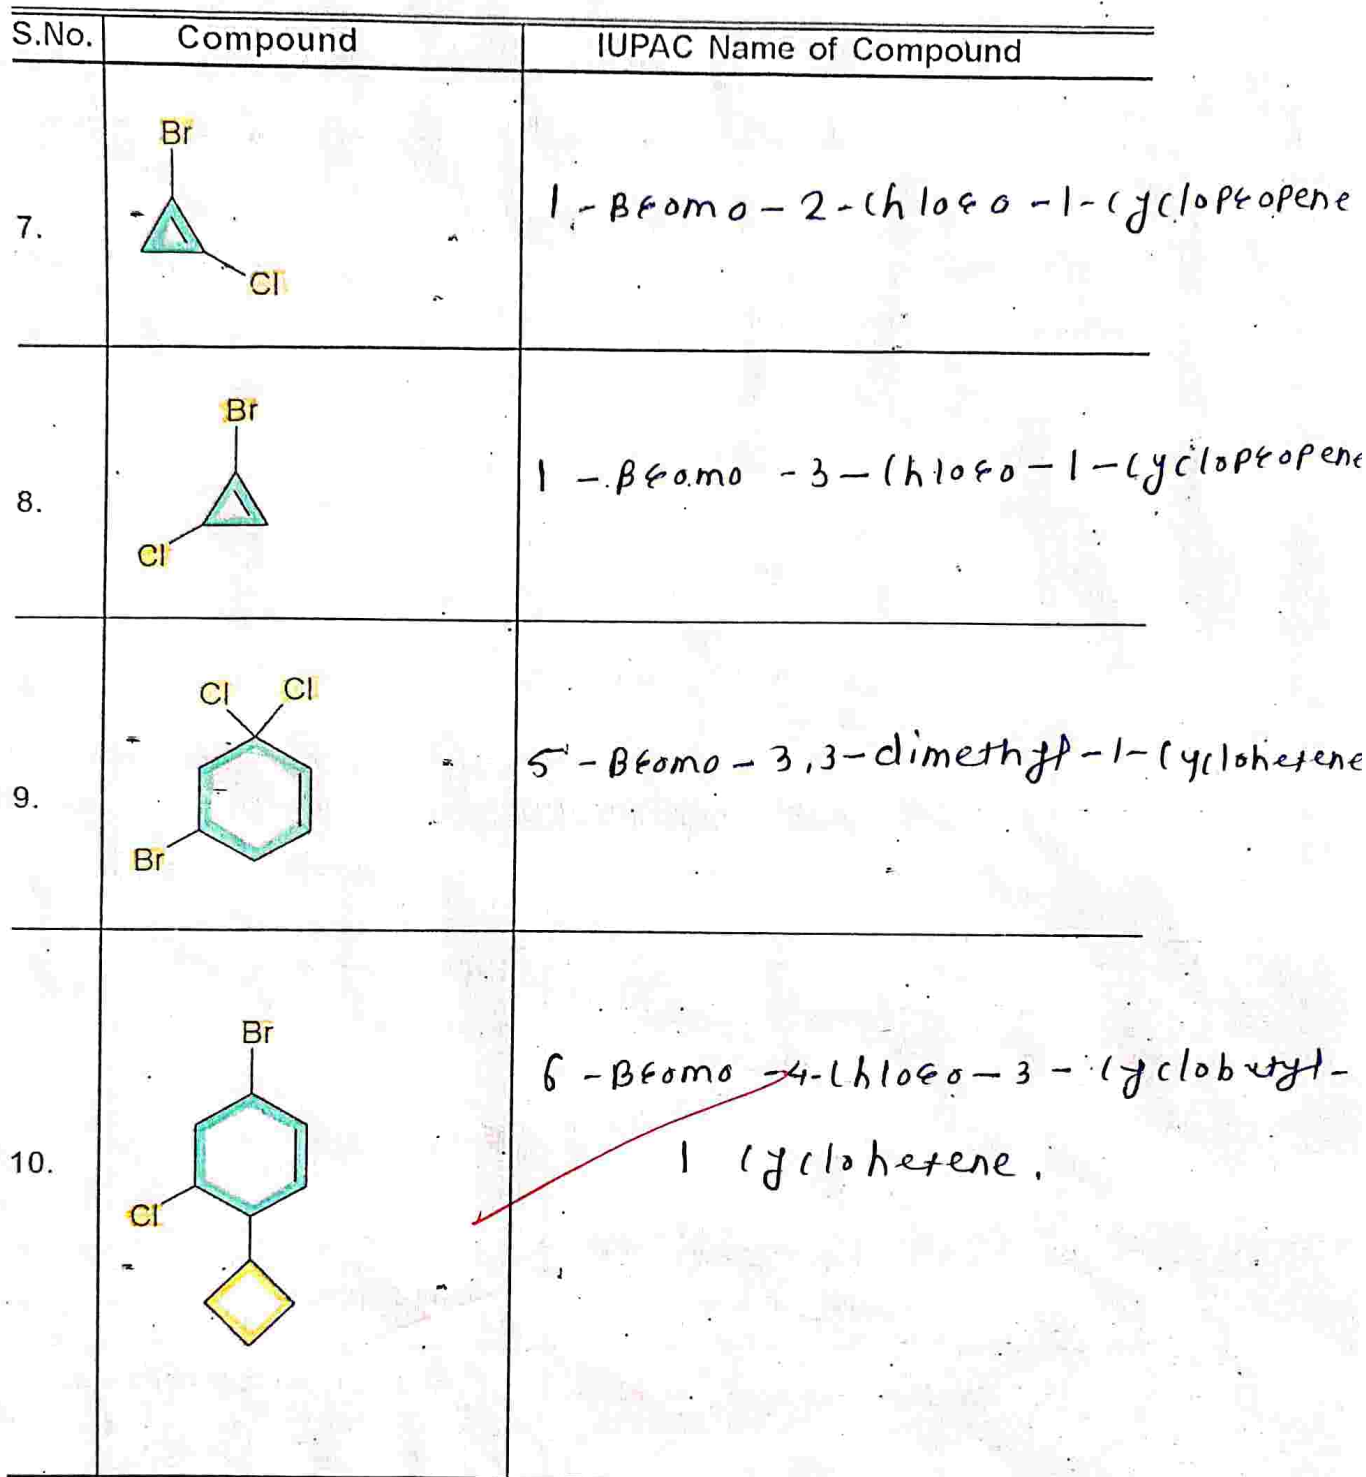 S.No. Compound IUPAC Name of Compound
Br
7. 1-Bromo-2-Chloro-1-Cyclopropene
Cl
Br
8. 1-Bromo-3-Chloro-1-Cyclopropene
Cl
Cl Cl
9. 5-Bromo-3,3-dimethyl-1-Cyclohexene
Br
Br
6-Bromo-4-Chloro-3-Cyclobutyl-
10. 1 Cyclohexene.
Cl